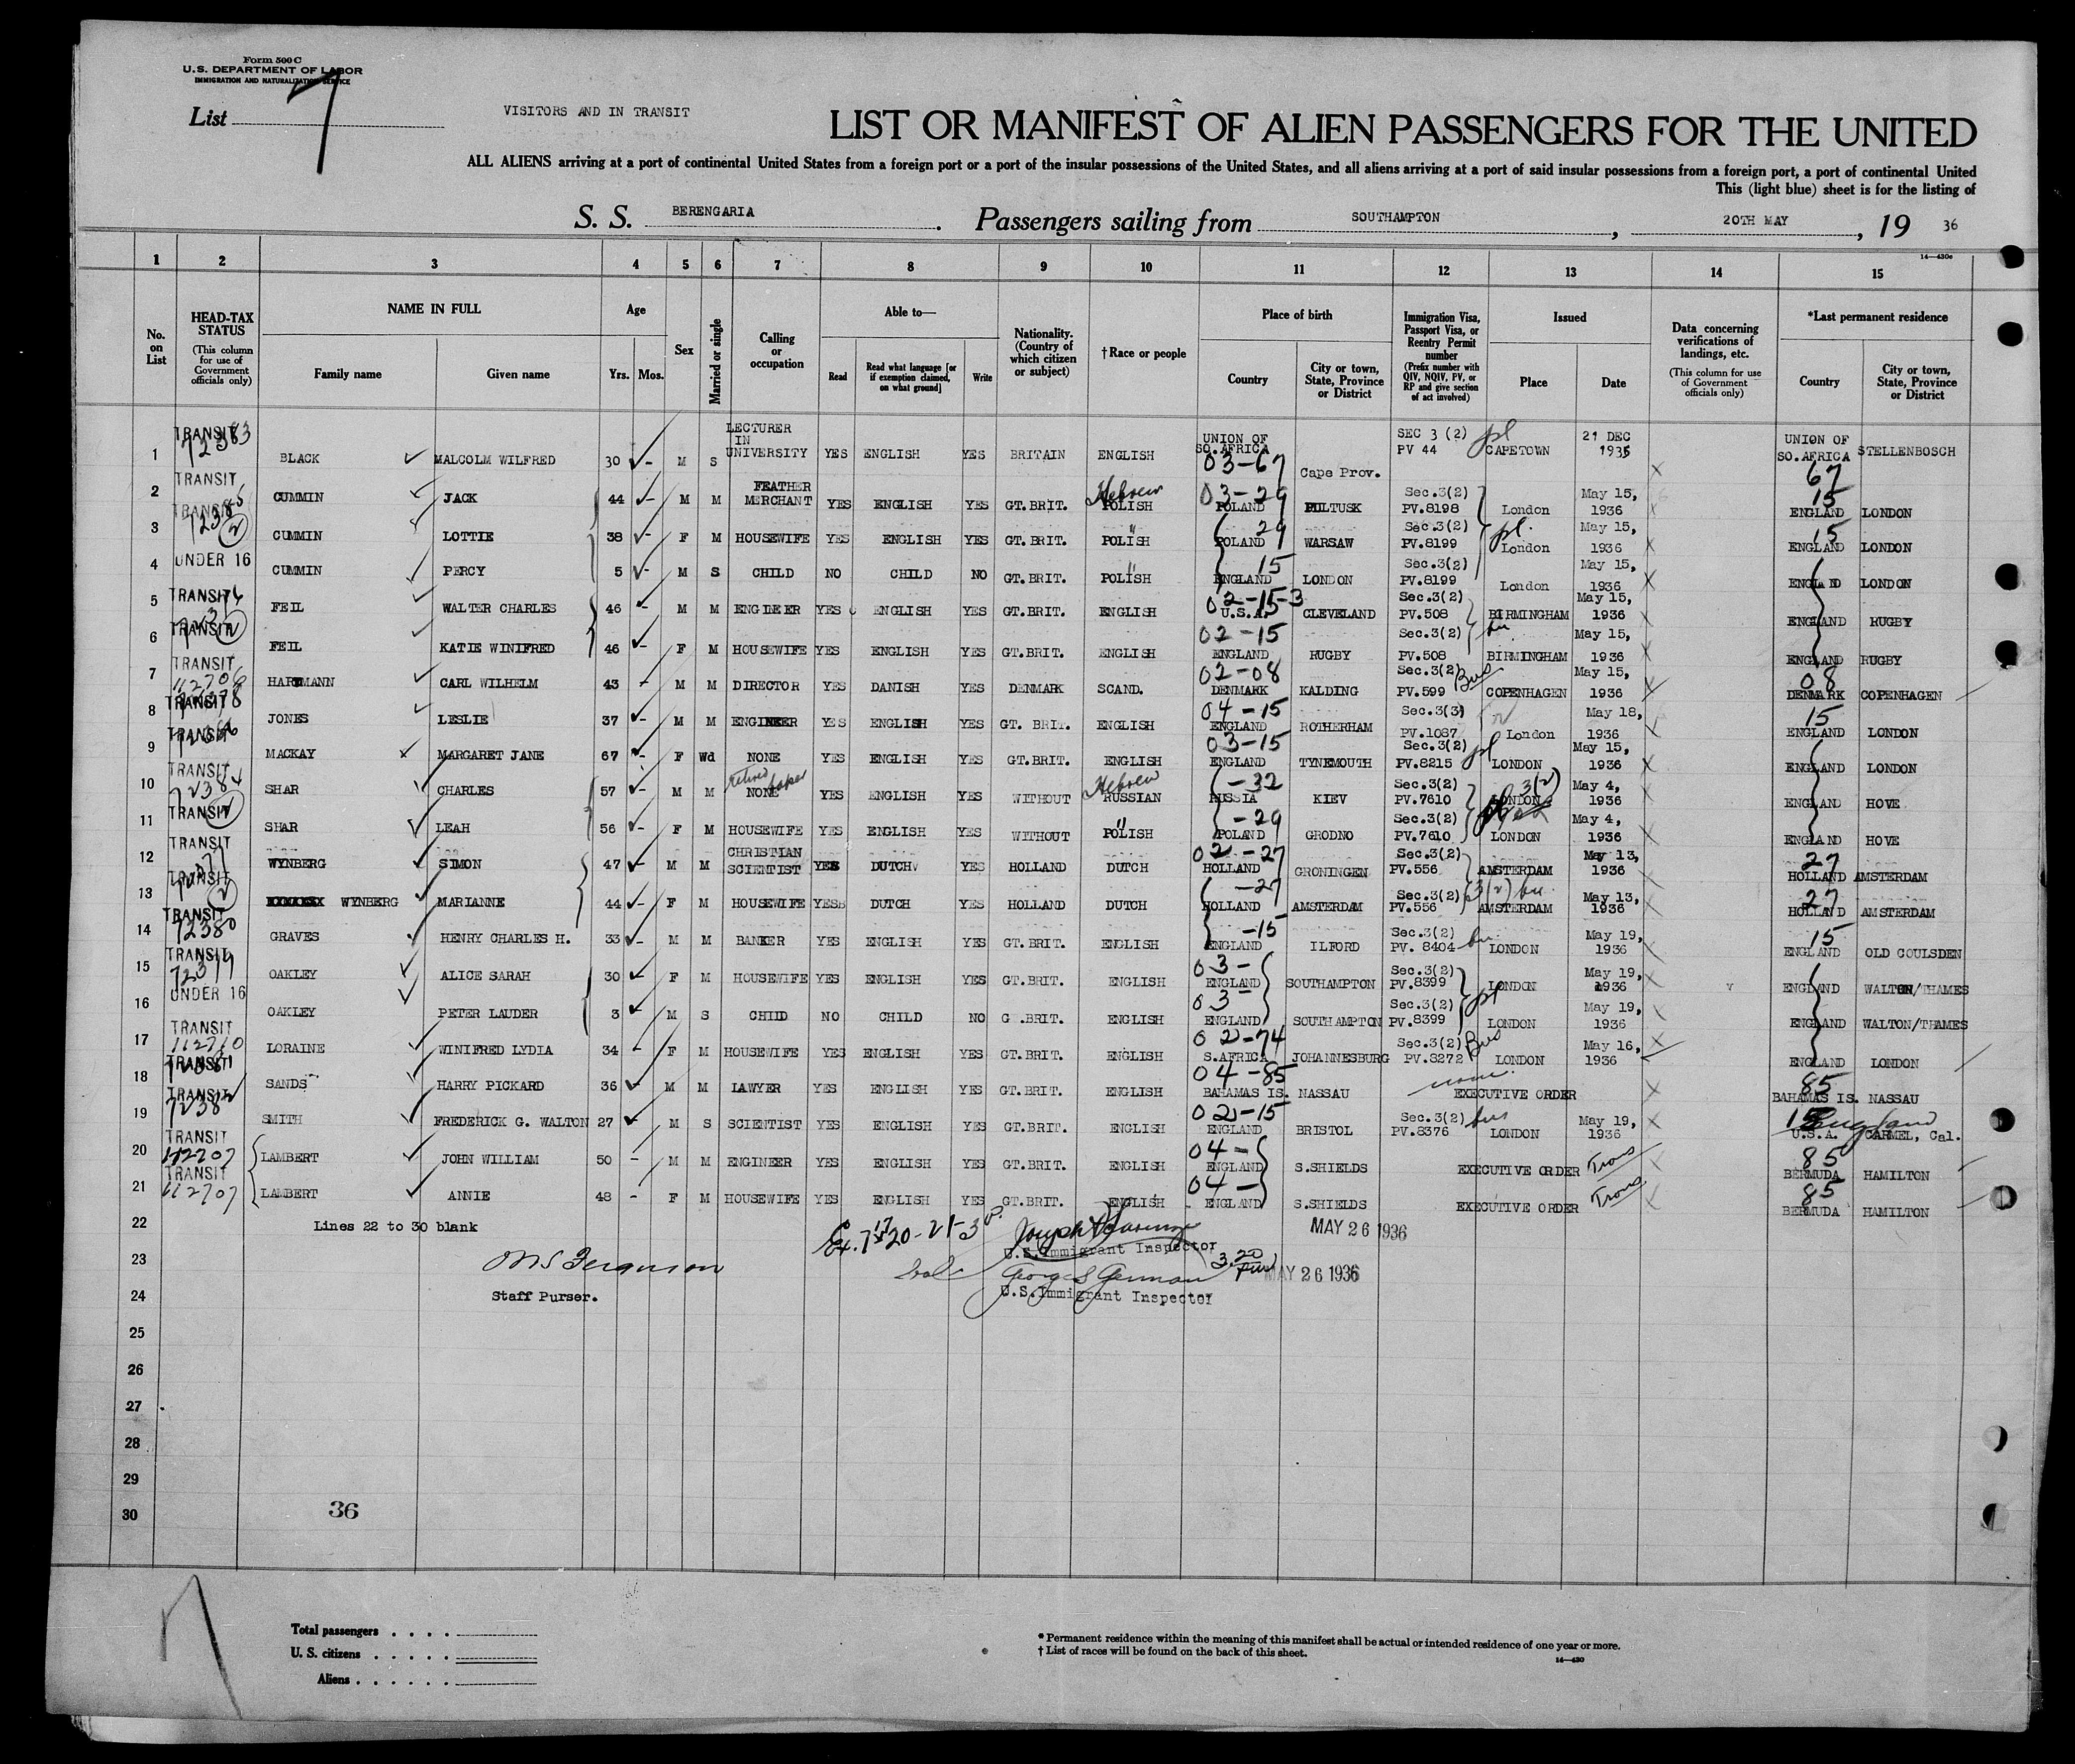 Form 500 C
U.S. DEPARTMENT OF LABOR
IMMIGRATION AND NATURALIZATION SERVICE
List 7
VISITORS AND IN TRANSIT
LIST OR MANIFEST OF ALIEN PASSENGERS FOR THE UNITED
ALL ALIENS arriving at a port of continental United States from a foreign port or a port of the insular possessions of the United States, and all aliens arriving at a port of said insular possessions from a foreign port, a port of continental United
This (light blue) sheet is for the listing of
S. S. BERENGARIA. Passengers sailing from SOUTHAMPTON, 20TH MAY, 19 36
14—430c
1 2 3 4 5 6 7 8 9 10 11 12 13 14 15
No. on List
HEAD-TAX STATUS (This column for use of Government officials only)
NAME IN FULL Family name Given name
Age Yrs. Mos.
Sex
Married or single
Calling or occupation
Able to— Read Read what language [or if exemption claimed, on what ground] Write
Nationality. (Country of which citizen or subject)
† Race or people
Place of birth Country City or town, State, Province or District
Immigration Visa, Passport Visa, or Reentry Permit number (Prefix number with QIV, NQIV, PV, or RP and give section of act involved)
Issued Place Date
Data concerning verifications of landings, etc. (This column for use of Government officials only)
*Last permanent residence Country City or town, State, Province or District
1 TRANSIT 72383 BLACK MALCOLM WILFRED 30 - M S LECTURER IN UNIVERSITY YES ENGLISH YES BRITAIN ENGLISH UNION OF SO. AFRICA 03-67 Cape Prov. SEC 3 (2) PV 44 pl CAPETOWN 21 DEC 1935 UNION OF SO. AFRICA 67 STELLENBOSCH
2 TRANSIT CUMMIN JACK 44 - M M FEATHER MERCHANT YES ENGLISH YES GT. BRIT. Hebrew POLISH 03-29 POLAND PULTUSK Sec.3(2) PV.8198 London May 15, 1936 15 ENGLAND LONDON
3 TRANSIT 72385 (2) CUMMIN LOTTIE 38 - F M HOUSEWIFE YES ENGLISH YES GT. BRIT. " POLISH 29 POLAND WARSAW Sec.3(2) PV.8199 pl. London May 15, 1936 15 ENGLAND LONDON
4 UNDER 16 CUMMIN PERCY 5 - M S CHILD NO CHILD NO GT. BRIT. " POLISH 15 ENGLAND LONDON Sec.3(2) PV.8199 London May 15, 1936 ENGLAND LONDON
5 TRANSIT FEIL WALTER CHARLES 46 - M M ENGINEER YES ENGLISH YES GT.BRIT. ENGLISH 02-15-3 U.S.A. CLEVELAND Sec.3(2) PV.508 BIRMINGHAM May 15, 1936 ENGLAND RUGBY
6 TRANSIT (2) FEIL KATIE WINIFRED 46 - F M HOUSEWIFE YES ENGLISH YES GT.BRIT. ENGLISH 02-15 ENGLAND RUGBY Sec.3(2) PV.508 BIRMINGHAM May 15, 1936 ENGLAND RUGBY
7 TRANSIT 112706 HARTMANN CARL WILHELM 43 - M M DIRECTOR YES DANISH YES DENMARK SCAND. 02-08 DENMARK KALDING Sec.3(2) PV.599 Bus COPENHAGEN May 15, 1936 08 DENMARK COPENHAGEN
8 TRANSIT 72378 JONES LESLIE 37 - M M ENGINEER YES ENGLISH YES GT. BRIT. ENGLISH 04-15 ENGLAND ROTHERHAM Sec.3(3) PV.1087 London May 18, 1936 15 ENGLAND LONDON
9 TRANSIT MACKAY MARGARET JANE 67 - F Wd NONE YES ENGLISH YES GT.BRIT. ENGLISH 03-15 ENGLAND TYNEMOUTH Sec.3(2) PV.8215 pl LONDON May 15, 1936 ENGLAND LONDON
10 TRANSIT 72384 SHAR CHARLES 57 - M M retired baker NONE YES ENGLISH YES WITHOUT Hebrew RUSSIAN -32 RUSSIA KIEV Sec.3(2) PV.7610 3(2) LONDON May 4, 1936 ENGLAND HOVE
11 TRANSIT (2) SHAR LEAH 56 - F M HOUSEWIFE YES ENGLISH YES WITHOUT " POLISH -29 POLAND GRODNO Sec.3(2) PV.7610 LONDON May 4, 1936 ENGLAND HOVE
12 TRANSIT WYNBERG SIMON 47 - M M CHRISTIAN SCIENTIST YES DUTCH YES HOLLAND DUTCH 02-27 HOLLAND GRONINGEN Sec.3(2) PV.556 AMSTERDAM May 13, 1936 27 HOLLAND AMSTERDAM
13 TRANSIT (2) WYNBERG MARIANNE 44 - F M HOUSEWIFE YES DUTCH YES HOLLAND DUTCH -27 HOLLAND AMSTERDAM Sec.3(2) PV.556 3(2) bu AMSTERDAM May 13, 1936 27 HOLLAND AMSTERDAM
14 TRANSIT 72380 GRAVES HENRY CHARLES H. 33 - M M BANKER YES ENGLISH YES GT.BRIT. ENGLISH -15 ENGLAND ILFORD Sec.3(2) PV. 8404 bu LONDON May 19, 1936 15 ENGLAND OLD COULSDEN
15 TRANSIT 72379 OAKLEY ALICE SARAH 30 - F M HOUSEWIFE YES ENGLISH YES GT.BRIT. ENGLISH 03- ENGLAND SOUTHAMPTON Sec.3(2) PV.8399 LONDON May 19, 1936 ENGLAND WALTON/THAMES
16 UNDER 16 OAKLEY PETER LAUDER 3 M S CHILD NO CHILD NO G .BRIT. ENGLISH 03- ENGLAND SOUTHAMPTON Sec.3(2) PV.8399 pl LONDON May 19, 1936 ENGLAND WALTON/THAMES
17 TRANSIT 112710 LORAINE WINIFRED LYDIA 34 - F M HOUSEWIFE YES ENGLISH YES GT.BRIT. ENGLISH 02-74 S.AFRICA JOHANNESBURG Sec.3(2) PV.8272 Bus LONDON May 16, 1936 ENGLAND LONDON
18 TRANSIT 72381 SANDS HARRY PICKARD 36 - M M LAWYER YES ENGLISH YES GT.BRIT. ENGLISH 04-85 BAHAMAS IS. NASSAU none. EXECUTIVE ORDER 85 BAHAMAS IS. NASSAU
19 TRANSIT 72382 SMITH FREDERICK G. WALTON 27 M S SCIENTIST YES ENGLISH YES GT.BRIT. ENGLISH 02-15 ENGLAND BRISTOL Sec.3(2) PV.8376 bus LONDON May 19, 1936 15 England U.S.A. CARMEL, Cal.
20 TRANSIT 112707 LAMBERT JOHN WILLIAM 50 - M M ENGINEER YES ENGLISH YES GT.BRIT. ENGLISH 04- ENGLAND S.SHIELDS EXECUTIVE ORDER Trans 85 BERMUDA HAMILTON
21 TRANSIT 112707 LAMBERT ANNIE 48 - F M HOUSEWIFE YES ENGLISH YES GT.BRIT. ENGLISH 04- ENGLAND S.SHIELDS EXECUTIVE ORDER Trans 85 BERMUDA HAMILTON
22 Lines 22 to 30 blank MAY 26 1936
U.S. Immigrant Inspector
23 Ferguson George S German MAY 26 1936
24 Staff Purser. U.S. Immigrant Inspector
25
26
27
28
29
30
36
7
Total passengers . . . .
U. S. citizens . . . . .
Aliens . . . . . .
* Permanent residence within the meaning of this manifest shall be actual or intended residence of one year or more.
† List of races will be found on the back of this sheet.
14—430